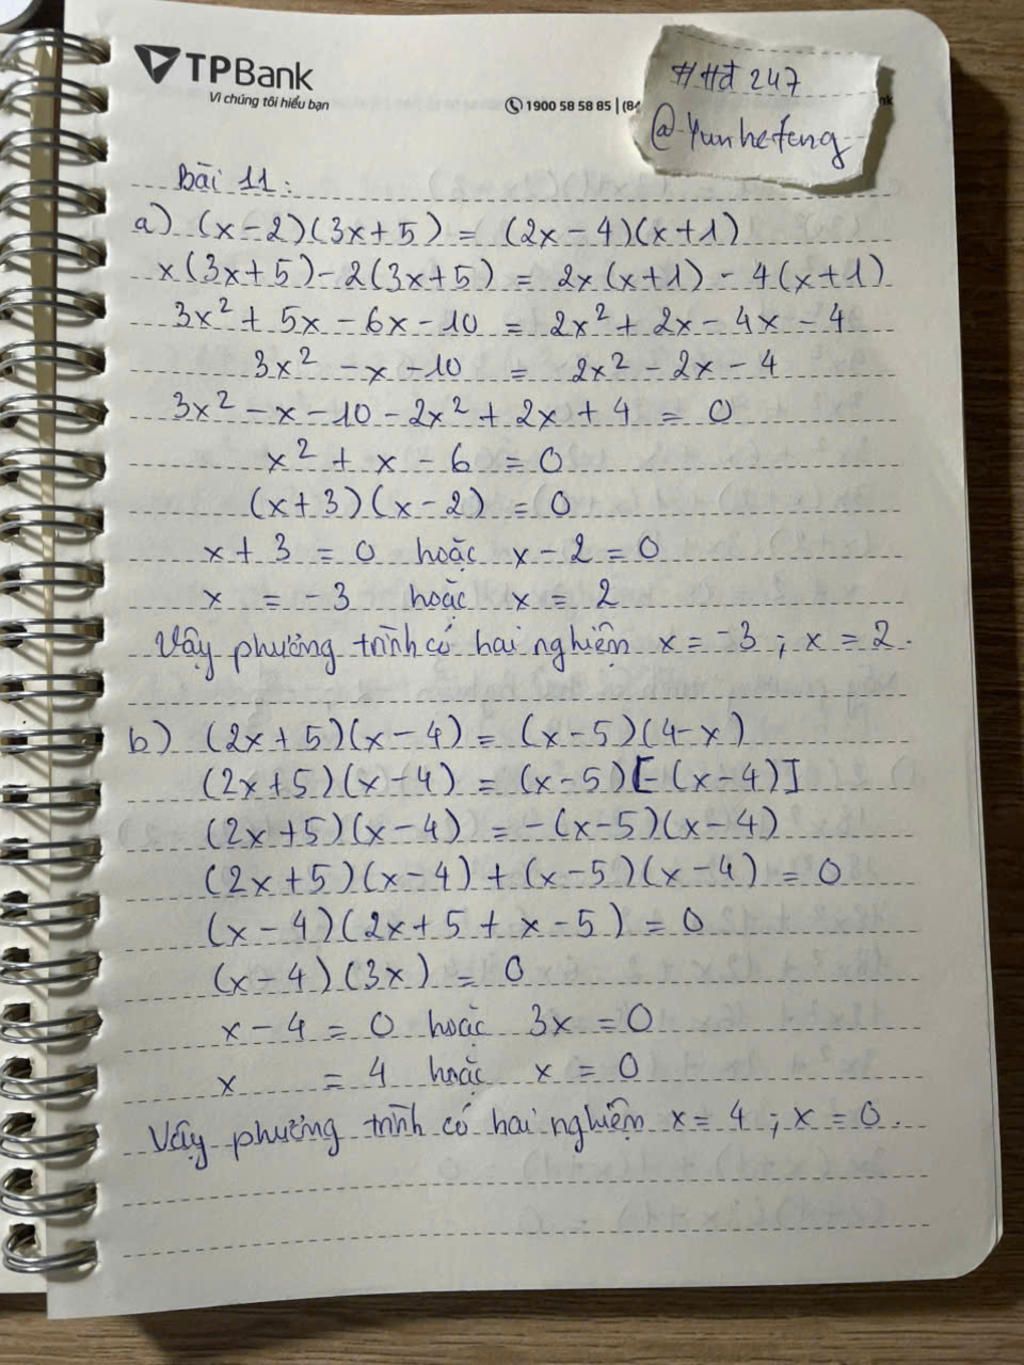 TPBank
Vì chúng tôi hiểu bạn
1900 58 58 85 | (84
nk
#Hđ 247
@Yunhefeng
Bài 11:
a) (x-2)(3x+5) = (2x-4)(x+1)
x(3x+5) - 2(3x+5) = 2x(x+1) - 4(x+1)
3x² + 5x - 6x - 10 = 2x² + 2x - 4x - 4
3x² - x - 10 = 2x² - 2x - 4
3x² - x - 10 - 2x² + 2x + 4 = 0
x² + x - 6 = 0
(x+3)(x-2) = 0
x + 3 = 0 hoặc x - 2 = 0
x = -3 hoặc x = 2
Vậy phương trình có hai nghiệm x = -3 ; x = 2.
b) (2x+5)(x-4) = (x-5)(4-x)
(2x+5)(x-4) = (x-5)[-(x-4)]
(2x+5)(x-4) = -(x-5)(x-4)
(2x+5)(x-4) + (x-5)(x-4) = 0
(x-4)(2x+5+x-5) = 0
(x-4)(3x) = 0
x - 4 = 0 hoặc 3x = 0
x = 4 hoặc x = 0
Vậy phương trình có hai nghiệm x = 4 ; x = 0.